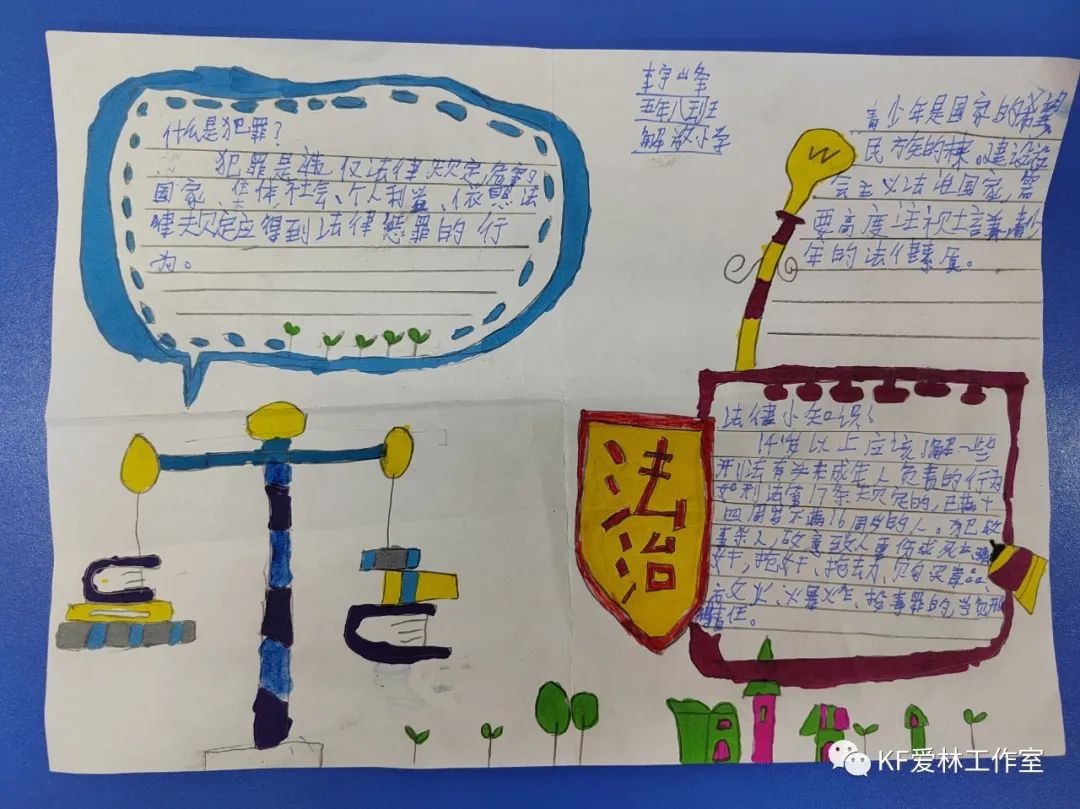 李宇峰
五年八班
解放小学
什么是犯罪?
犯罪是法律规定,危害
国家、集体社会、个人利益、依照法
律规定应得到法律惩罪的行
为。
青少年是国家的希望
民族的未。建设社
会主义法治国家,需
要高度注视青少
年的法律素质。
法治
法律小知识:
14岁以上应该了解一些
刑法有关未成年人负责的行为
如刑法第17条规定的,已满十
四周岁不满16周岁的人。犯故
意杀人,故意致人重伤或死亡,强
奸,抢奸、抢劫、贩卖毒品、
方火、火暴炸、投毒罪的,当负刑
责任。
KF爱林工作室